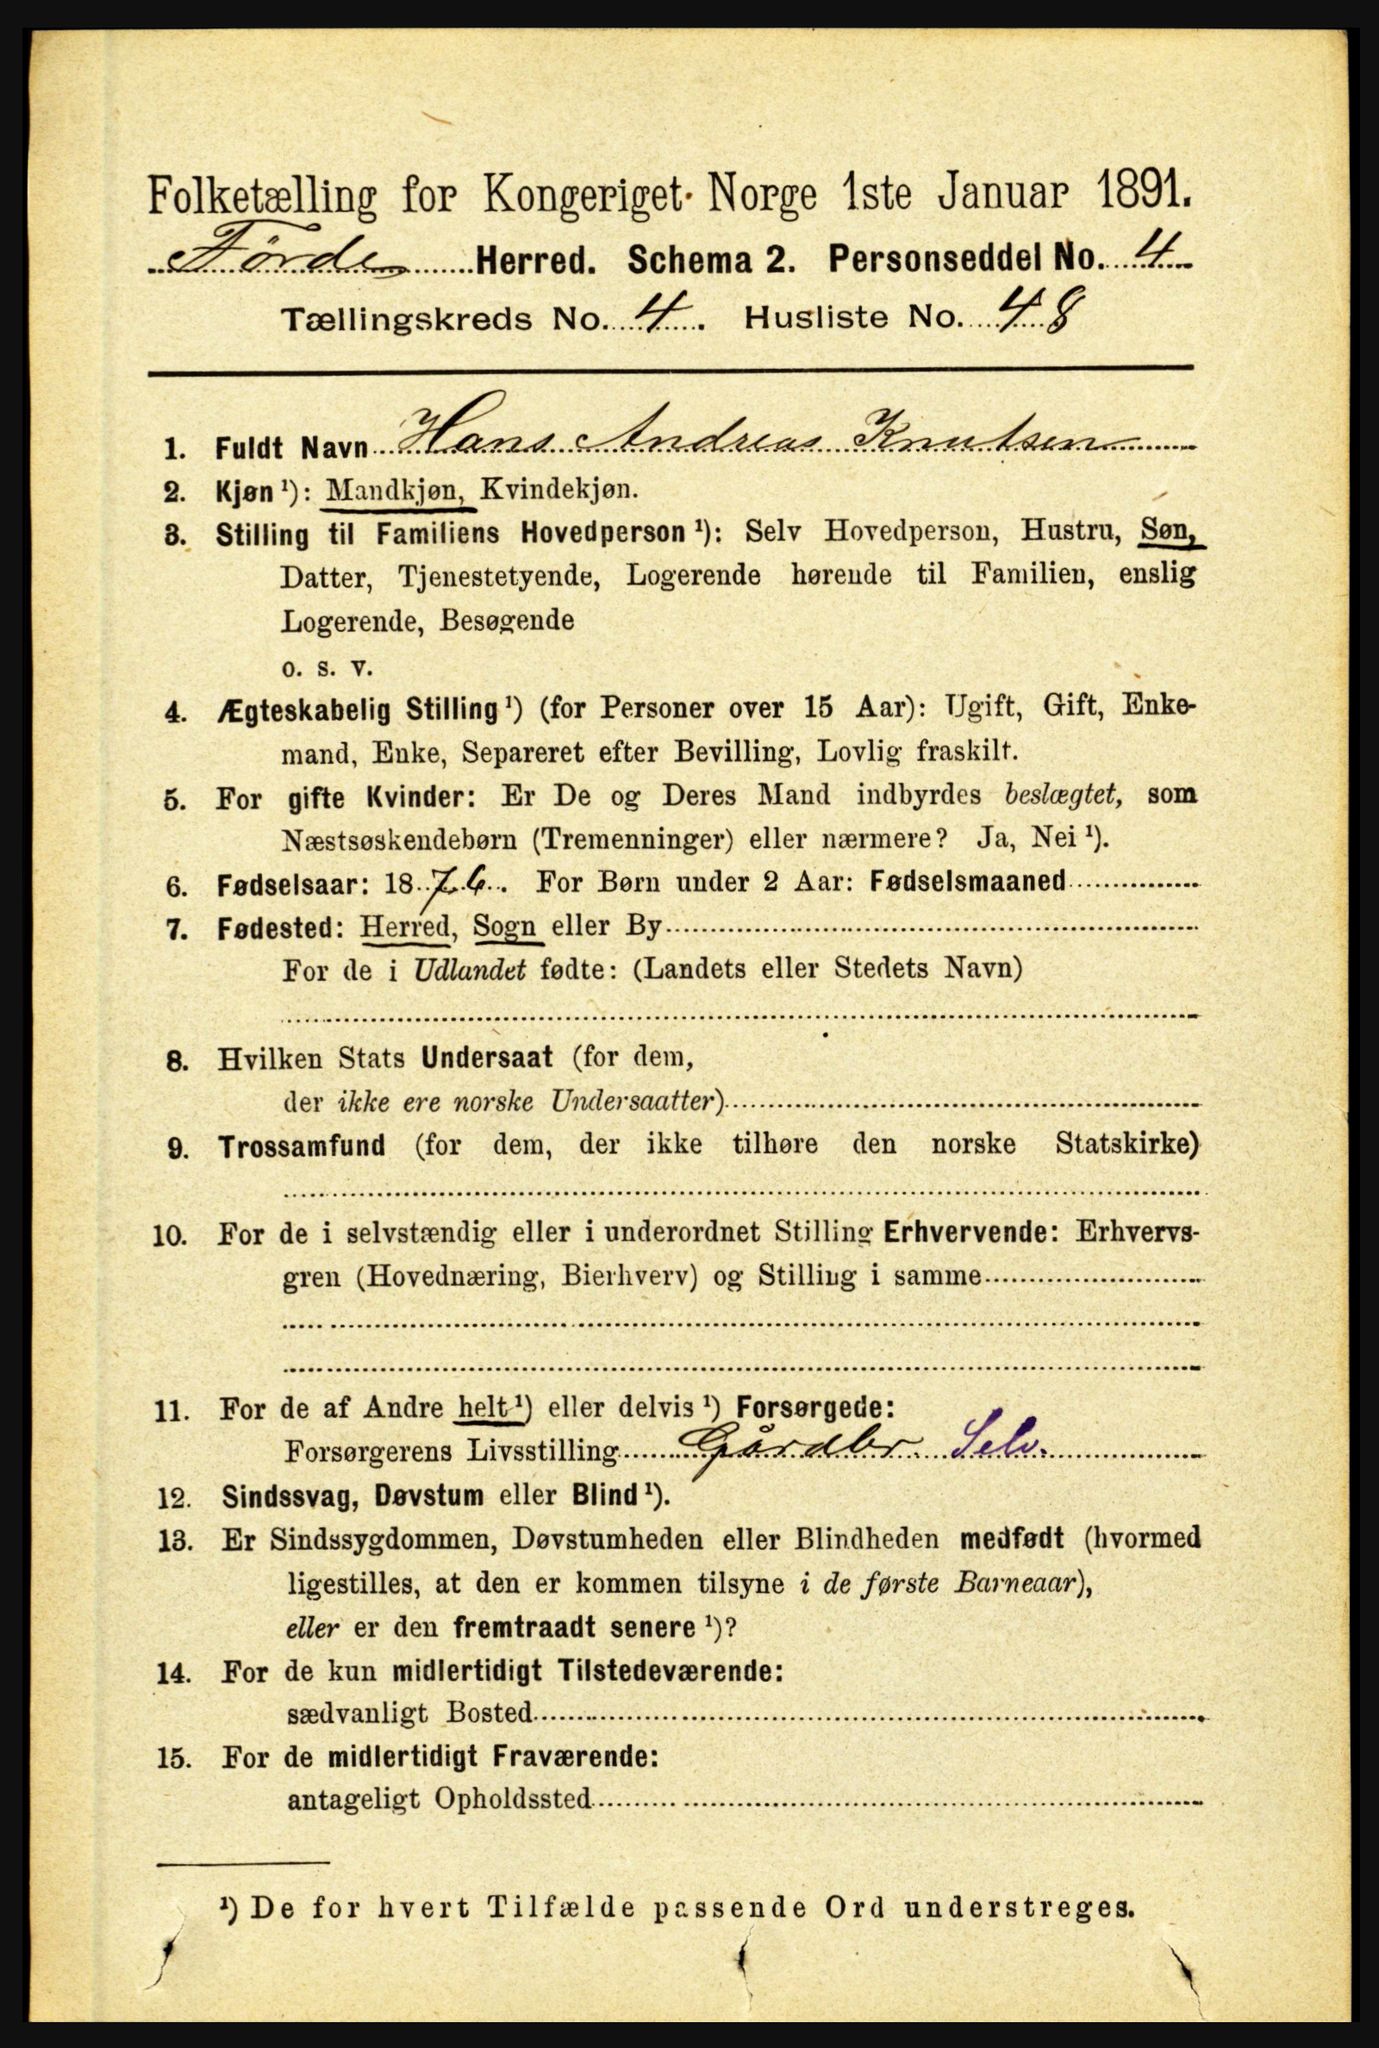 Folketælling for Kongeriget Norge 1ste Januar 1891.
Førde Herred. Schema 2. Personseddel No. 4
Tællingskreds No. 4. Husliste No. 48
1. Fuldt Navn Hans Andreas Knutsen
2. Kjøn ¹): Mandkjøn, Kvindekjøn.
3. Stilling til Familiens Hovedperson ¹): Selv Hovedperson, Hustru, Søn,
Datter, Tjenestetyende, Logerende hørende til Familien, enslig
Logerende, Besøgende
o. s. v.
4. Ægteskabelig Stilling ¹) (for Personer over 15 Aar): Ugift, Gift, Enke-
mand, Enke, Separeret efter Bevilling, Lovlig fraskilt.
5. For gifte Kvinder: Er De og Deres Mand indbyrdes beslægtet, som
Næstsøskendebørn (Tremenninger) eller nærmere? Ja, Nei ¹).
6. Fødselsaar: 1876. For Børn under 2 Aar: Fødselsmaaned
7. Fødested: Herred, Sogn eller By
For de i Udlandet fødte: (Landets eller Stedets Navn)
8. Hvilken Stats Undersaat (for dem,
der ikke ere norske Undersaatter)
9. Trossamfund (for dem, der ikke tilhøre den norske Statskirke)
10. For de i selvstændig eller i underordnet Stilling Erhvervende: Erhvervs-
gren (Hovednæring, Bierhverv) og Stilling i samme
11. For de af Andre helt ¹) eller delvis ¹) Forsørgede:
Forsørgerens Livsstilling Gårdbr. Selv.
12. Sindssvag, Døvstum eller Blind ¹).
13. Er Sindssygdommen, Døvstumheden eller Blindheden medfødt (hvormed
ligestilles, at den er kommen tilsyne i de første Barneaar),
eller er den fremtraadt senere ¹)?
14. For de kun midlertidigt Tilstedeværende:
sædvanligt Bosted
15. For de midlertidigt Fraværende:
antageligt Opholdssted
¹) De for hvert Tilfælde passende Ord understreges.